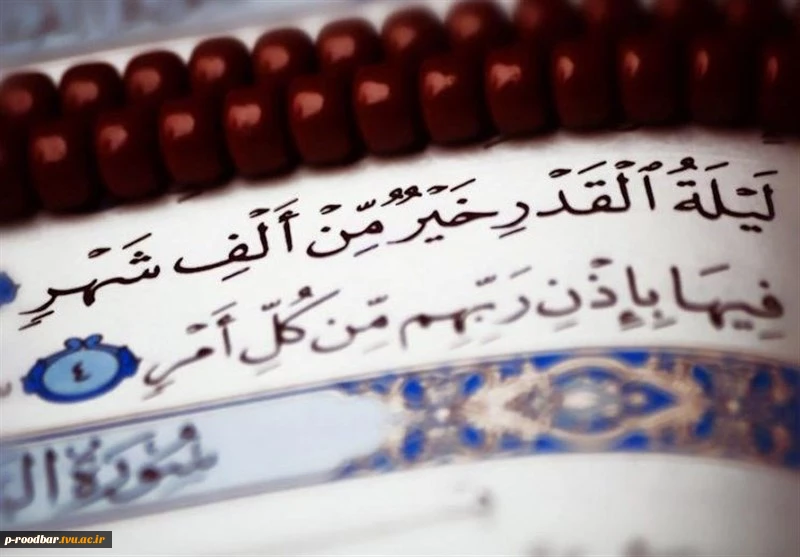 لَيْلَةُ ٱلْقَدْرِ خَيْرٌ مِّنْ أَلْفِ شَهْرٍ
فِيهَا بِإِذْنِ رَبِّهِم مِّن كُلِّ أَمْرٍ ٤
سُورَةُ
p-roodbar.tvu.ac.ir